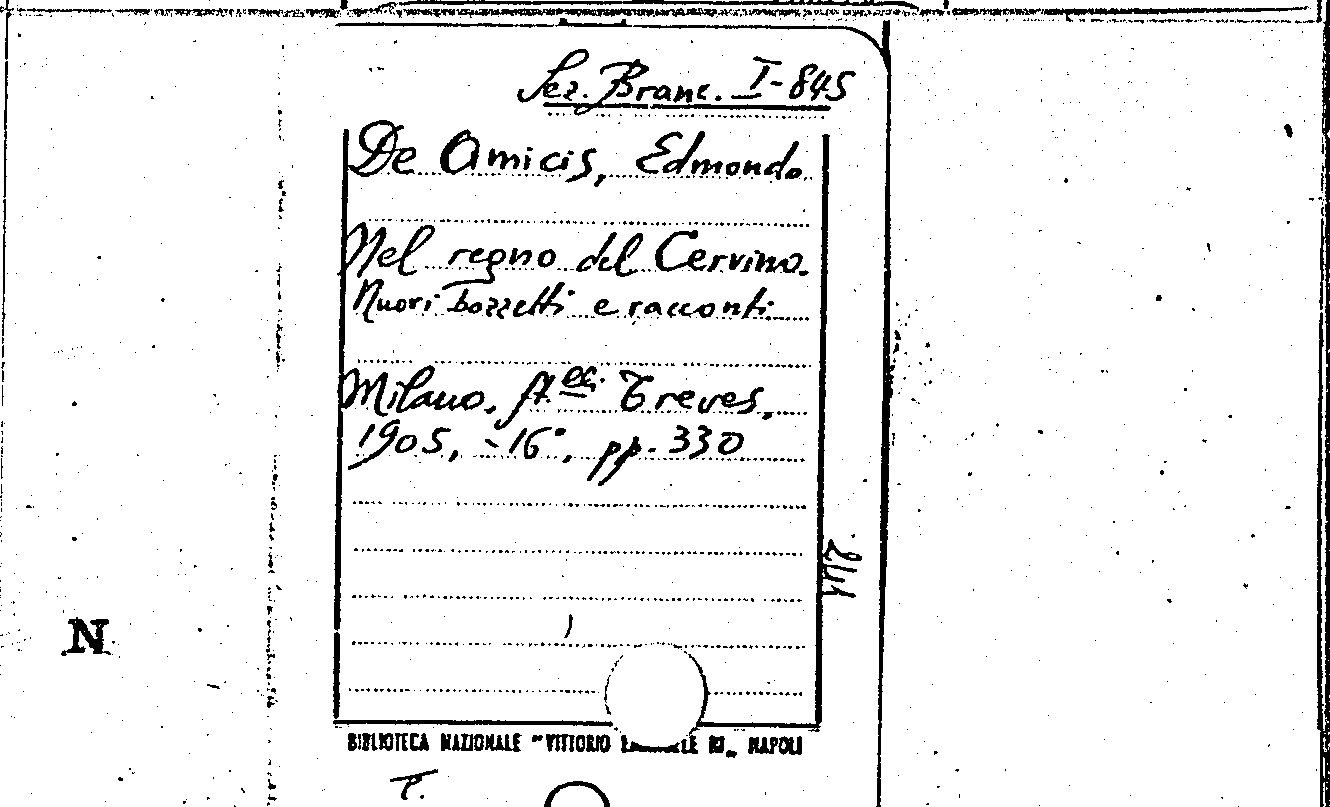 Sez. Branc. I-845
De Amicis, Edmondo
Nel regno del Cervino.
Nuovi bozzetti e racconti
Milano, ft.eci Treves,
1905, -16°, pp. 330
241
N
BIBLIOTECA NAZIONALE "VITTORIO NAPOLI
T.